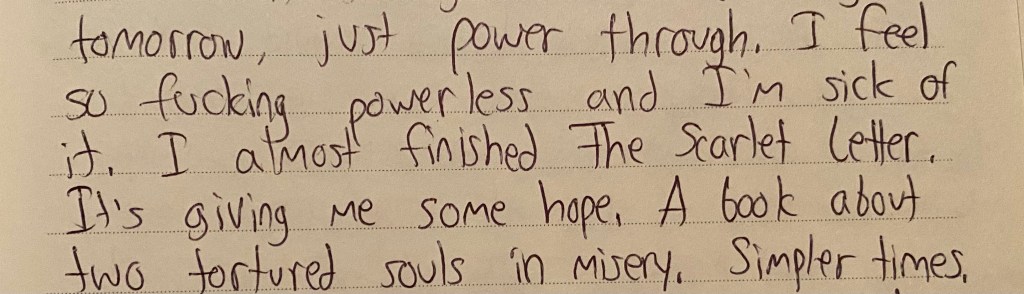 tomorrow, just power through. I feel
so fucking powerless and I'm sick of
it. I almost finished The Scarlet Letter.
It's giving me some hope. A book about
two tortured souls in misery. Simpler times.